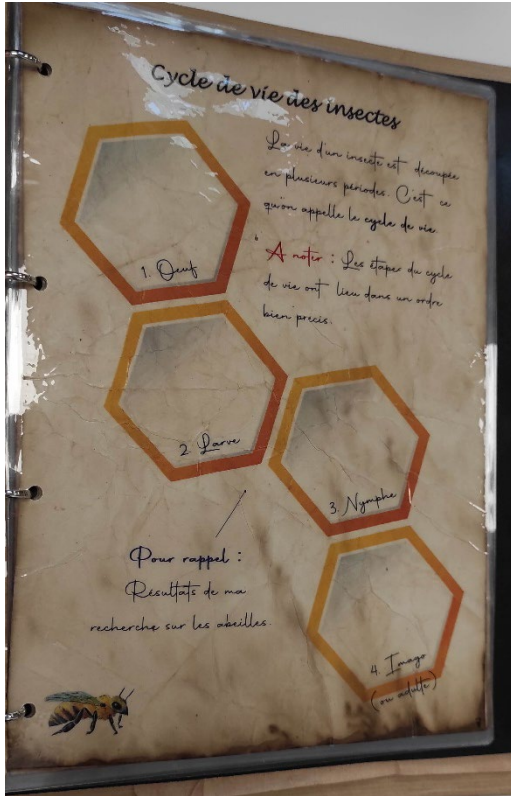 Cycle de vie des insectes
La vie d'un insecte est découpée
en plusieurs périodes. C'est ce
qu'on appelle le cycle de vie.
A noter : Les étapes du cycle
de vie ont lieu dans un ordre
bien précis.
1. Oeuf
2. Larve
3. Nymphe
4. Imago
(ou adulte)
Pour rappel :
Résultats de ma
recherche sur les abeilles.